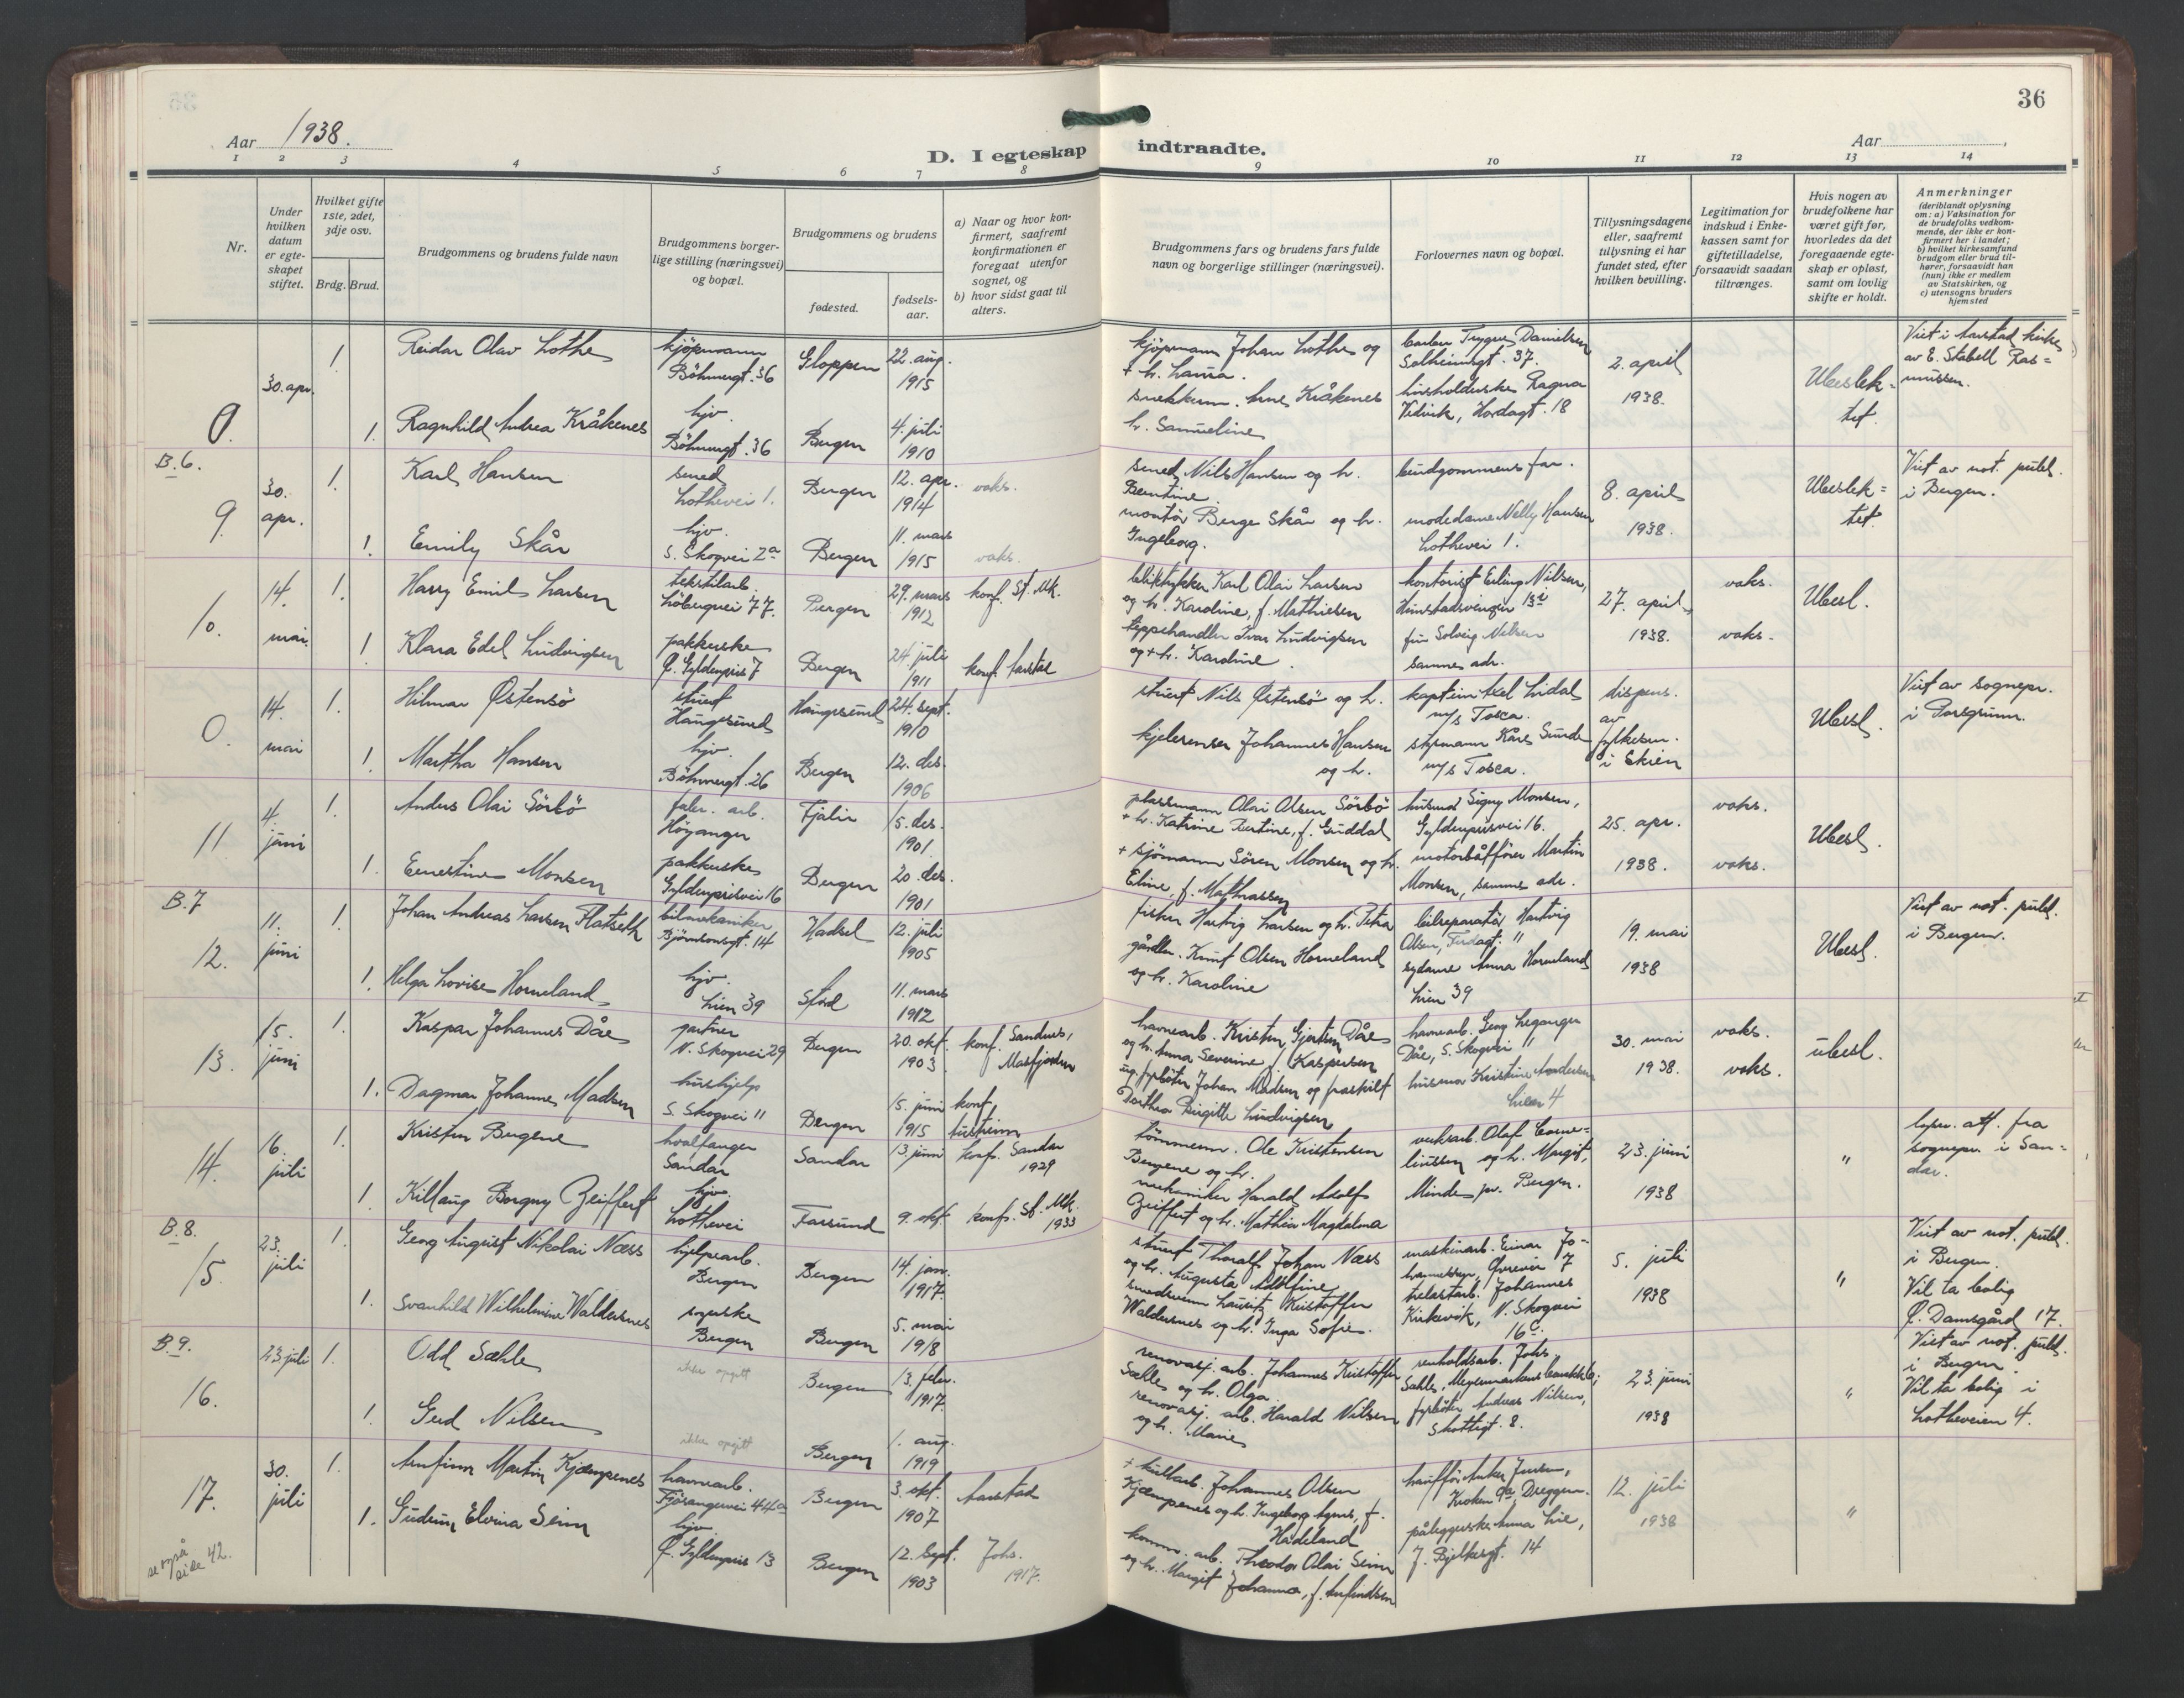 36
Aar 1938.
D. I egteskap indtraadte.
Aar
1 2 3 4 5 6 7 8 9 10 11 12 13 14
Nr.
Under
hvilken
datum
er egte-
skapet
stiftet.
Hvilket gifte
1ste, 2det,
3dje osv.
Brdg. Brud.
Brudgommens og brudens fulde navn
Brudgommens borger-
lige stilling (næringsvei)
og bopæl.
Brudgommens og brudens
fødested.
fødsels-
aar.
a) Naar og hvor kon-
firmert, saafremt
konfirmationen er
foregaat utenfor
sognet, og
b) hvor sidst gaat til
alters.
Brudgommens fars og brudens fars fulde
navn og borgerlige stillinger (næringsvei).
Forlovernes navn og bopæl.
Tillysningsdagene
eller, saafremt
tillysning ei har
fundet sted, efter
hvilken bevilling.
Legitimation for
indskud i Enke-
kassen samt for
giftetilladelse,
forsaavidt saadan
tiltrænges.
Hvis nogen av
brudefolkene har
været gift før,
hvorledes da det
foregaaende egte-
skap er opløst,
samt om lovlig
skifte er holdt.
Anmerkninger
(deriblandt oplysning
om: a) Vaksination for
de brudefolks vedkom-
mende, der ikke er kon-
firmert her i landet;
b) hvilket kirkesamfund
brudgom eller brud til-
hører, forsaavidt han
(hun) ikke er medlem
av Statskirken, og
c) utensogns bruders
hjemsted
0.
30. apr.
1.
Reidar Olav Lothe
kjöpmann
Böhmergt. 36
Gloppen
22. aug.
1915
kjöpmann Johan Lothe og
+ h. Laura.
Trygve Danielsen
Solheimsgt. 37.
2. april
1938.
Ubeslek-
tet
Viet i Aarstad kirke
av E. Stabell Ras=
mussen.
1.
Ragnhild Andrea Kråkenes
hjv.
Böhmergt. 36
Bergen
4. juli
1910
snekkerm. Arne Kråkenes
h. Samueline
husholderske Ragna
Vidvik, Hordagt. 18
B.6.
9.
30.
apr.
1.
Karl Hansen
smed
Lothevei 1.
Bergen
12. apr.
1914
vaks.
smed Nils Hansen og h.
Berntine
brudgommens far.
8. april
1938.
Ubeslek=
tet.
Viet av not. publ.
i Bergen.
1.
Emily Skår
hjv.
S. Skogvei 2a
Bergen
11. mars
1915
vaks.
montör Berge Skår og h.
Ingeborg.
modedame Nelly Hansen
Lothevei 1.
10.
14.
mai
1.
Harry Emil Larsen
tekstilarb.
Löbergvei 77.
Bergen
29. mars
1912
konf. St. Mk.
blikktrykker Karl Olai Larsen
og h. Karoline, f. Mathiesen
kontorist Erling Nilsen,
27. april
1938.
vaks.
Ubesl.
1
Klara Edel Ludvigsen
pakkerske
Ø. Gyldenpris 7
Bergen
24. juli
1911
konf. Aarstad
teppehandler Ivar Ludvigsen
og + h. Karoline.
fru Solveig Nilsen
samme adr.
vaks.
0.
14.
mai
1.
Hilmar Østensö
stuert
Haugesund
Haugesund
24. sept.
1910
stuert Nils Østensö og h.
kaptein Axel Lidal
m/s Tosca.
dispens.
av
fylkesm.
i Skien
Ubesl.
Viet av sognepr.
i Porsgrunn.
1.
Martha Hansen
hjv.
Böhmergt. 26
Bergen
12. des.
1906
kjelerenser Johannes Hansen
og h.
styrmann Kåre Sunde
m/s Tosca.
11.
4.
juni
1.
Anders Olai Sörbö
fabr. arb.
Höyanger
Fjaler
15. des.
1901
plassmann Olai Olsen Sörbö
+ h. Katrine Bertine, f. Guddal
husmor Signy Monsen,
Gyldenprisvei 16.
25. apr.
1938.
vaks.
Ubesl.
1.
Ernestine Monsen
pakkerske
Gyldenprisvei 16
Bergen
20. des.
1901
+ sjömann Sören Monsen og h.
Eline, f. Mathiassen
motorbåtförer Martin
Monsen, samme adr.
vaks.
B.7
12.
11.
juni
1.
Johan Andreas Larsen Flatseth
bilmekaniker
Björnsonsgt. 14
Hadsel
12. juli
1905
fisker Hartvig Larsen og h. Petra
bilreparatör Hartvig
Olsen,
19. mai
1938
Ubesl.
Viet av not. publ.
i Bergen.
1.
Helga Lovise Horneland
hjv.
Lien 39
Stord
11. mars
1912
gårdbr. Knut Olsen Horneland
og h. Karoline
sydame Anna Horneland
Lien 39
13.
15.
juni
1.
Kaspar Johannes Dåe
gartner
N. Skogvei 29
Bergen
20. okt.
1903
konf. Sandnes,
Masfjorden
havnearb. Kristen Gjertsen Dåe
og h. Anna Severine f. Kaspersen
havnearb. Georg Leganger
Dåe, S. Skogvei 11
30. mai
1938.
vaks.
ubesl.
1.
Dagmar Johanne Madsen
hushjelp
S. Skogvei 11
Bergen
15. juni
1915
konf.
ug. fyrböter Johan Madsen og fraskilt
Dorthea Birgitte Ludvigsen
husmor Kristine Andersen
Lien 4
vaks.
14.
16.
juli
1.
Kristen Bergene
hvalfanger
Sandar
Sandar
13. juni
konf. Sandar
1929
tömmerm. Ole Kristensen
Bergene og h.
verksarb. Olaf Corne=
liussen og h. Margit,
Minde pr. Bergen.
23. juni
1938
"
lysn. att. fra
sognepr. i San=
dar.
1
Killaug Borgny Zeiffert
hjv.
Lothevei
Farsund
9. okt.
konf. St. Mk.
1933
mekaniker Harald Adolf
Zeiffert og h. Mathea Magdalena
B.8.
15.
23.
juli
1.
Georg August Nikolai Næss
hjelpearb.
Bergen
Bergen
14. jan.
1917.
stuert Thoralf Johan Næss
og h. Augusta Adolfine
maskinarb. Einar Jo-
hannessen, Øvrevei 7
5. juli
1938
"
Viet av not. publ.
i Bergen.
Vil ta bolig
Ø. Damsgård 17.
1.
Svanhild Wilhelmine Waldersnes
syerske
Bergen
Bergen
5. mai
1918
Lauritz Kristoffer
Waldersnes og h. Inga Sofie.
Johannes
Kirkevik, N. Skogvei
16c.
B.9.
16.
23 juli
1.
Odd Sæhle
ikke opgitt
Bergen
13. febr.
1917.
renovasj. arb. Johannes Kristoffer
Sæhle og h. Olga.
renholdsarb. Johs.
23. juni
1938
"
Viet av not. publ.
i Bergen.
Vil ta bolig i
Lotheveien 4.
1.
Gerd Nilsen
ikke opgitt
Bergen
1. aug.
1919
renovasj. arb. Harald Nilsen
og h. Marie
fyrböter Andreas Nilsen,
Skottegt. 8.
17.
30.
juli
1.
Arnfinn Martin Kjæmpenes
havnearb.
Fjösangervei 44a
Bergen
3. okt.
1907
Aarstad
+ kullarb. Johannes Olsen
Kjæmpenes og h. Ingeborg Agnes, f.
Hadeland
Kroken 9a, Dreggen.
12. juli
1938
"
1.
Gudrun Elvina Seim
hjv.
Ø. Gyldenpris 13
Bergen
12. sept.
1903
Johs.
1917.
komm. arb. Theodor Olai Seim
og h. Margit Johanna, f. Arfindsen
påleggerske Anna Lie,
J. Bjelkesgt. 14
se også
side 42.